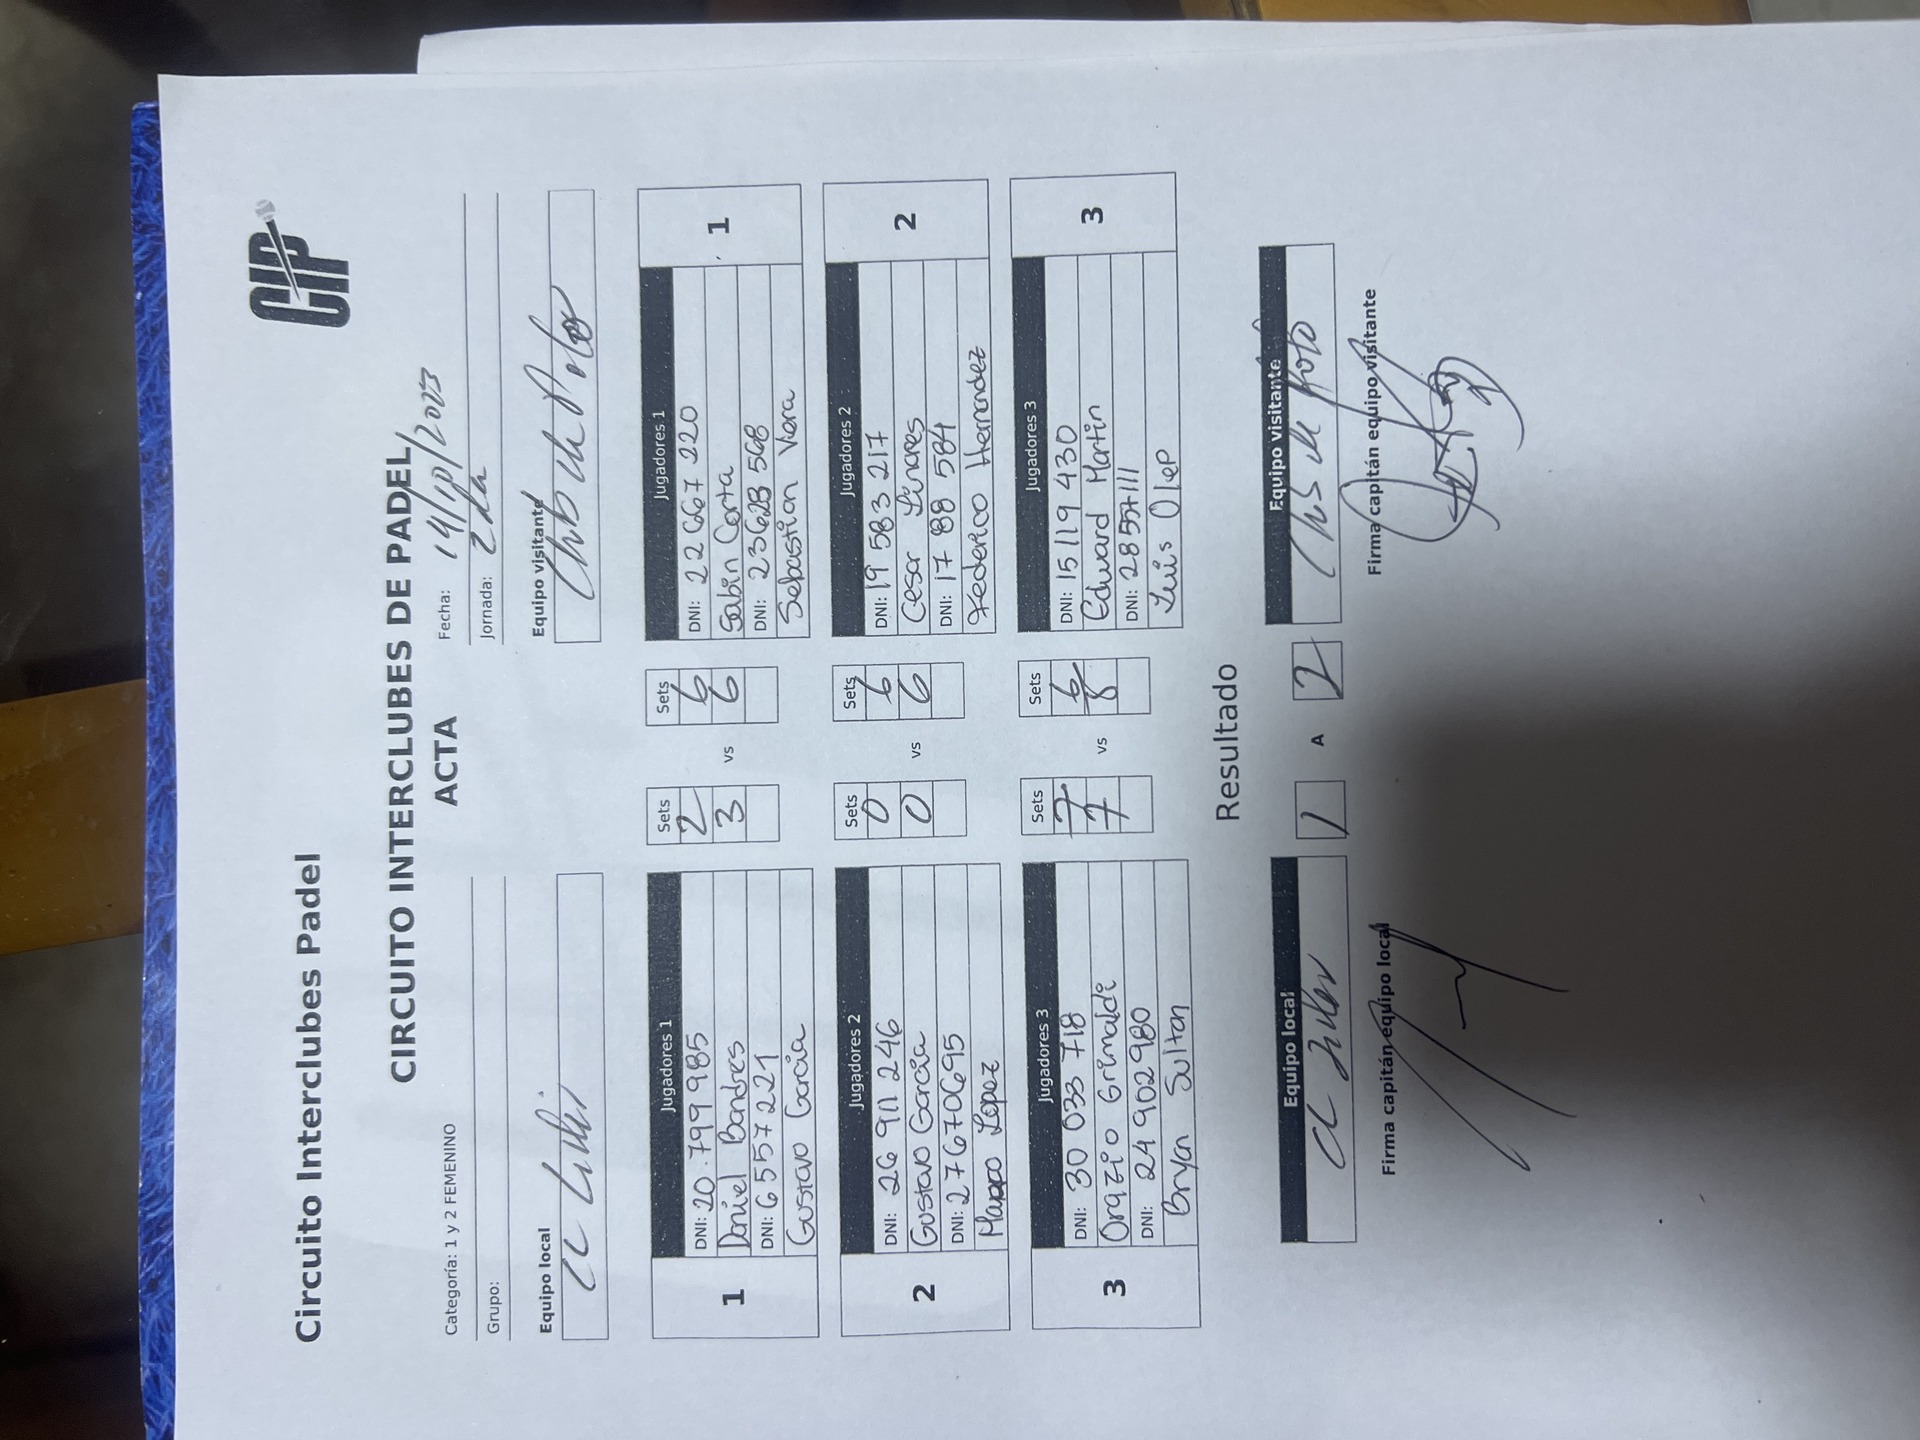 CIP
Circuito Interclubes Padel
CIRCUITO INTERCLUBES DE PADEL
ACTA
Categoría: 1 y 2 FEMENINO
Fecha: 14/10/2023
Grupo:
Jornada: 2da
Equipo local
Equipo visitante
CC
Jugadores 1 Sets Sets Jugadores 1
1 DNI: 20.799985 2 6 DNI: 22 667 220 1
Daniel Bandres 3 vs 6 Sabin Corta
DNI: 6557221 DNI: 23628 568
Gustavo García Sebastian Viera
Jugadores 2 Sets Sets Jugadores 2
2 DNI: 26 911 246 0 6 DNI: 19 583 217 2
Gustavo García 0 vs 6 Cesar Linares
DNI: 27670695 DNI: 17 788 584
Lopez Federico Hernandez
Jugadores 3 Sets Sets Jugadores 3
3 DNI: 30 033 718 7 6 DNI: 15119 430 3
Orazio Grimaldi 7 vs Eduard Martin
DNI: 24902980 DNI: 28557111
Bryan Sultan Luis Olep
Resultado
Equipo local Equipo visitante
CC 1 A 2
Firma capitán equipo local Firma capitán equipo visitante